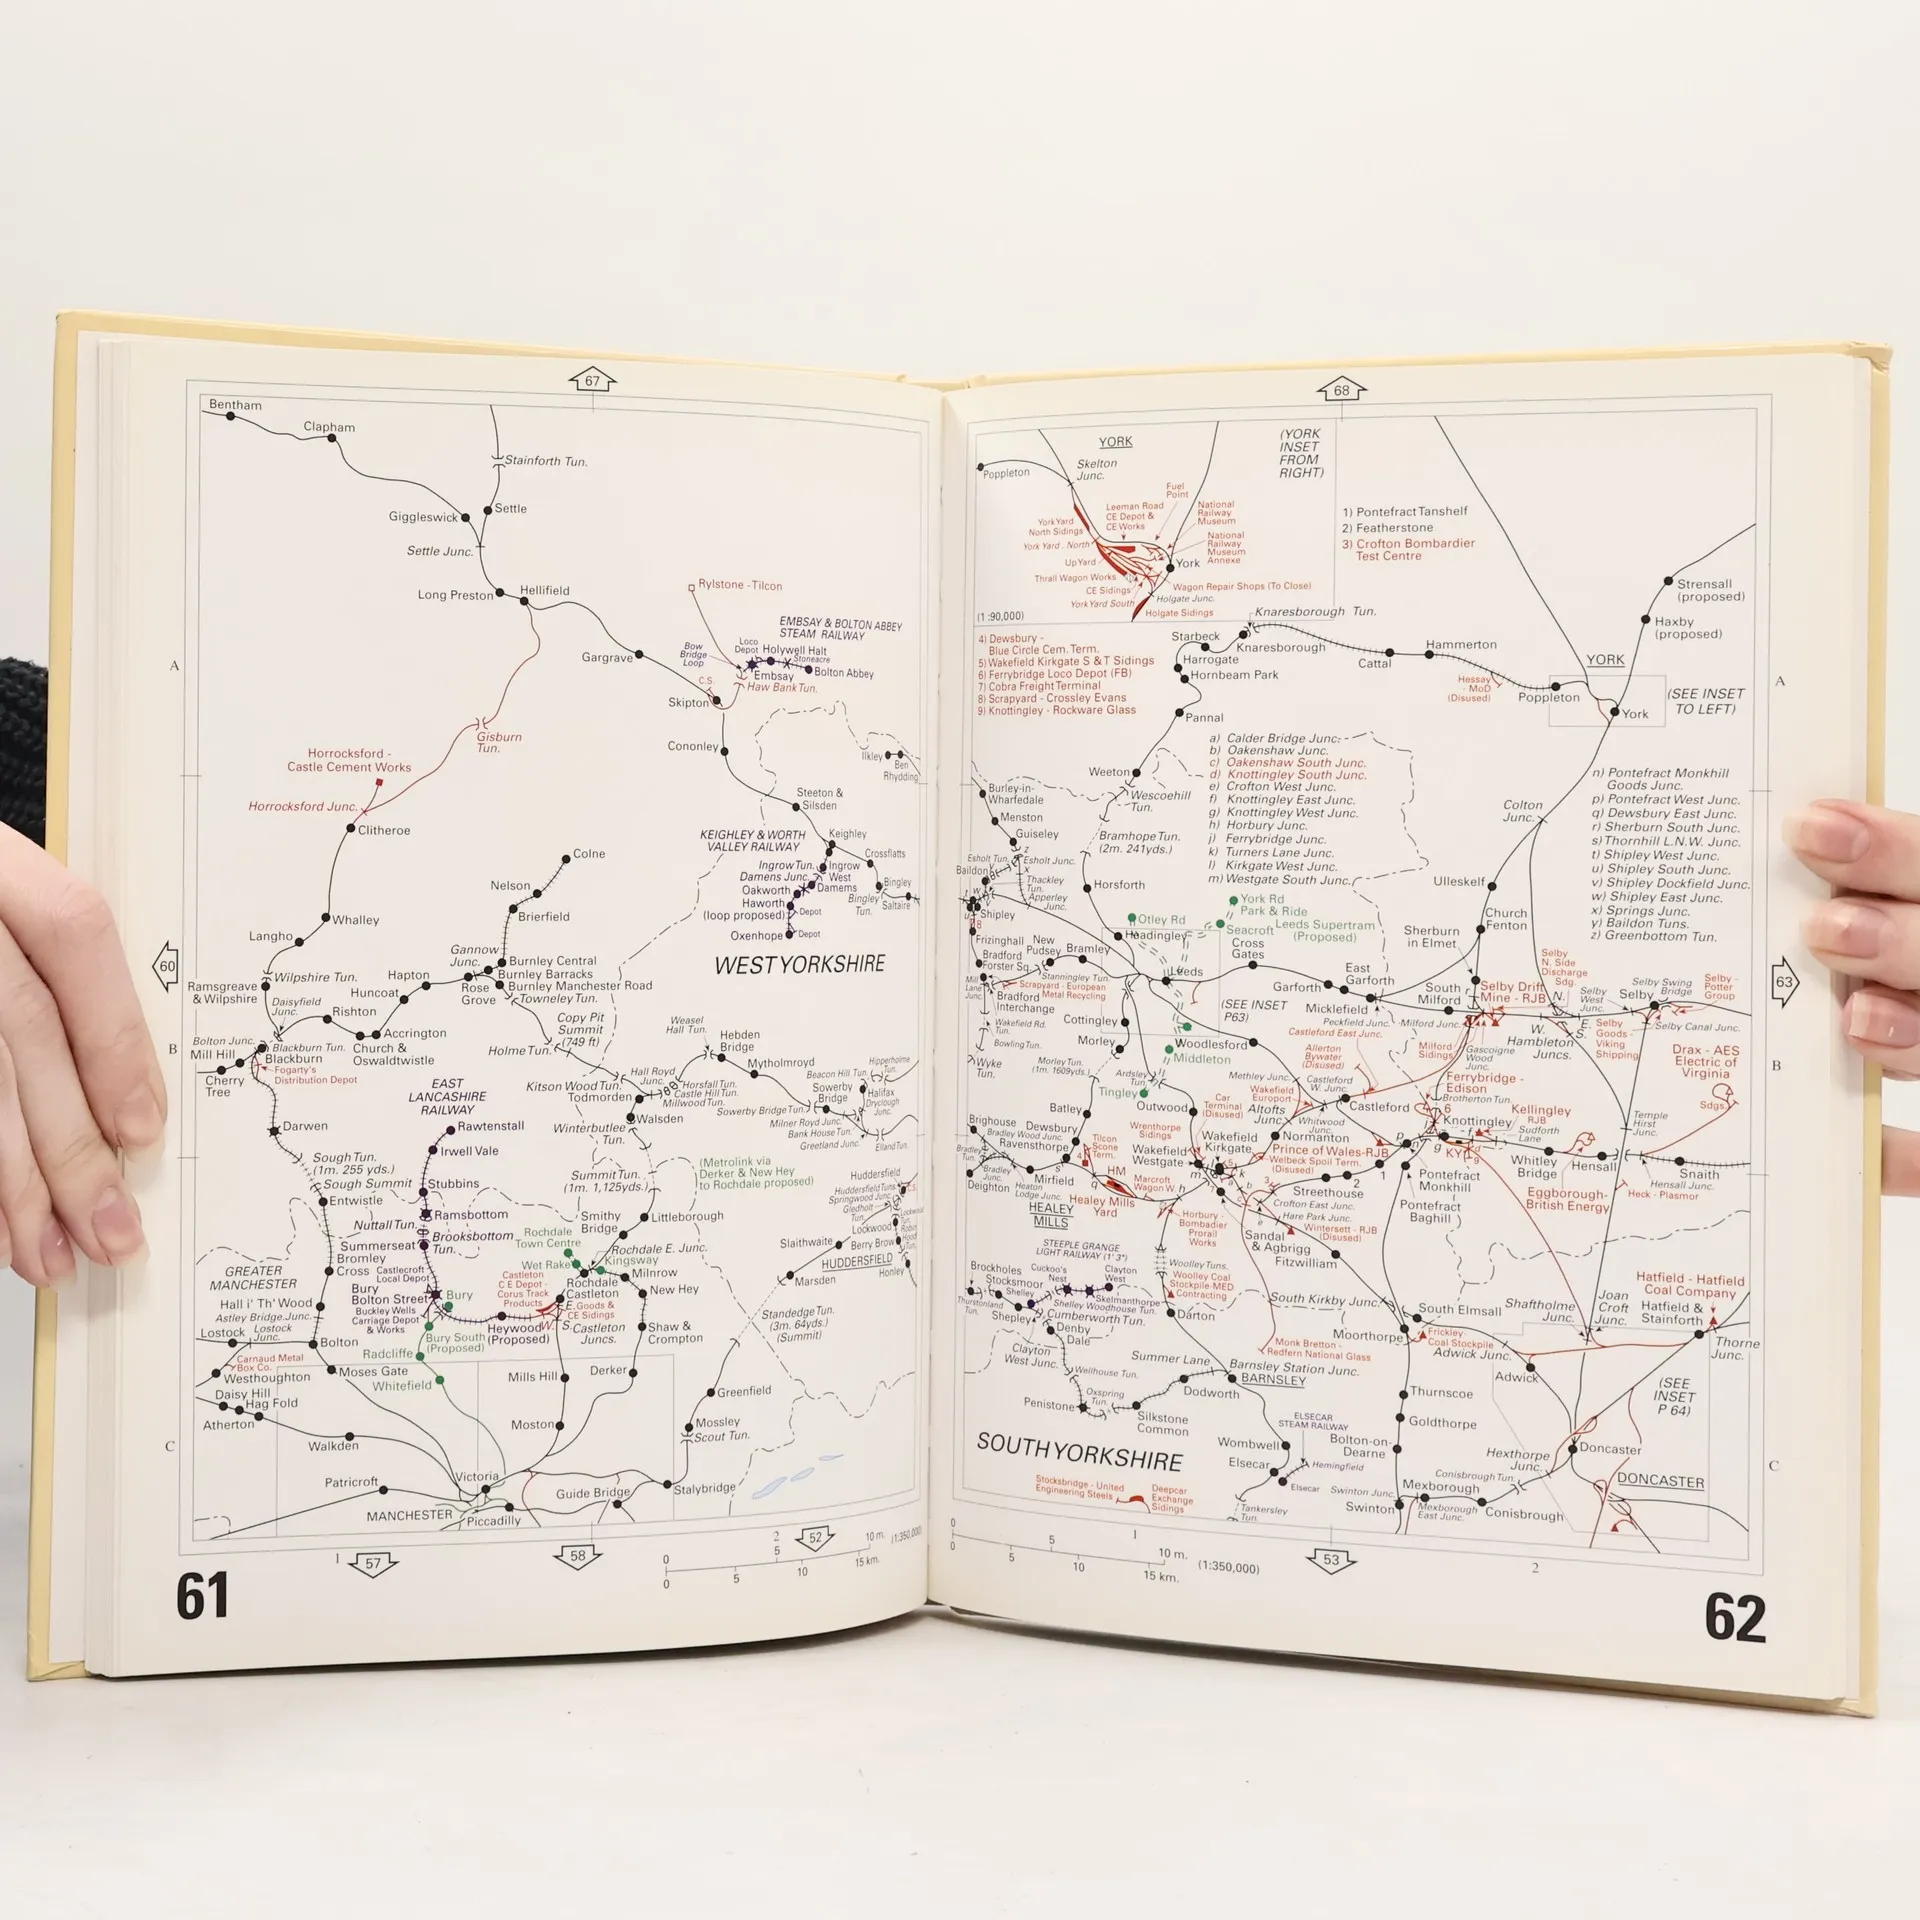 67
Bentham
Clapham
Stainforth Tun.
Settle
Giggleswick
Settle Junc.
Long Preston
Hellifield
Rylstone - Tilcon
EMBSAY & BOLTON ABBEY
STEAM RAILWAY
Bow
Bridge
Loop
Loco
Depot
Holywell Halt
Stoneacre
Bolton Abbey
Embsay
Haw Bank Tun.
Gargrave
C.S.
Skipton
A
Gisburn
Tun.
Cononley
Horrocksford -
Castle Cement Works
Ilkley
Ben
Rhydding
Horrocksford Junc.
Clitheroe
Steeton &
Silsden
KEIGHLEY & WORTH
VALLEY RAILWAY
Keighley
Colne
Crossflatts
Ingrow Tun.
Ingrow
West
Damens Junc.
Damems
Bingley
Oakworth
Bingley
Tun.
Saltaire
Nelson
Haworth
(loop proposed)
Depot
Brierfield
Whalley
Oxenhope
Depot
Langho
60
Gannow
Junc.
WEST YORKSHIRE
Wilpshire Tun.
Hapton
Burnley Central
Burnley Barracks
Burnley Manchester Road
Ramsgreave
& Wilpshire
Huncoat
Rose
Grove
Towneley Tun.
Daisyfield
Junc.
Rishton
Copy Pit
Summit
(749 ft)
Weasel
Hall Tun.
Hebden
Bridge
Accrington
Church &
Oswaldtwistle
Bolton Junc.
Mill Hill
B
Blackburn Tun.
Blackburn
Fogarty's
Distribution Depot
Cherry
Tree
Holme Tun.
Mytholmroyd
Hipperholme
Tun.
Beacon Hill Tun.
EAST
LANCASHIRE
RAILWAY
Kitson Wood Tun.
Todmorden
Hall Royd
Junc.
Horsfall Tun.
Castle Hill Tun.
Millwood Tun.
Sowerby
Bridge
Halifax
Dryclough
Junc.
Sowerby Bridge Tun.
Milner Royd Junc.
Bank House Tun.
Greetland Junc.
Elland Tun.
Walsden
Winterbutlee
Tun.
Darwen
Rawtenstall
Irwell Vale
Sough Tun.
(1m. 255 yds.)
Sough Summit
Stubbins
Summit Tun.
(1m. 1,125yds.)
(Metrolink via
Derker & New Hey
to Rochdale proposed)
Huddersfield
Huddersfield Tuns.
Springwood Junc.
Gledholt
Tun.
Entwistle
Ramsbottom
Nuttall Tun.
Brooksbottom
Tun.
Smithy
Bridge
Littleborough
Lockwood
Berry Brow
Rochdale
Town Centre
Summerseat
Rochdale E. Junc.
Kingsway
Slaithwaite
HUDDERSFIELD
Honley
Bromley
Cross
Wet Rake
Milnrow
Rochdale
Marsden
GREATER
MANCHESTER
Castlecroft
Local Depot
Castleton
C E Depot -
Corus Track
Products
Castleton
E. Goods &
CE Sidings
New Hey
Bury
Bolton Street
Bury
Buckley Wells
Carriage Depot
& Works
Hall i' Th' Wood
Astley Bridge Junc.
Heywood
(Proposed)
W.
S. Castleton
Juncs.
Shaw &
Crompton
Standedge Tun.
(3m. 64yds.)
(Summit)
Lostock
Lostock
Junc.
Bolton
Bury South
(Proposed)
Radcliffe
Carnaud Metal
Box Co.
Westhoughton
Moses Gate
Whitefield
Mills Hill
Derker
Daisy Hill
Hag Fold
Atherton
Greenfield
Moston
Mossley
Scout Tun.
C
Walkden
Patricroft
Victoria
Guide Bridge
Stalybridge
MANCHESTER
Piccadilly
1
57
58
2
52
0 5 10 m. (1:350,000)
0 5 10 15 km.
61
68
YORK
(YORK
INSET
FROM
RIGHT)
Poppleton
Skelton
Junc.
Fuel
Point
Leeman Road
CE Depot &
CE Works
National
Railway
Museum
York Yard
North Sidings
York Yard . North
National
Railway
Museum
Annexe
Up Yard
York
Thrall Wagon Works
Wagon Repair Shops (To Close)
CE Sidings
Holgate Junc.
York Yard South
Holgate Sidings
(1:90,000)
1) Pontefract Tanshelf
2) Featherstone
3) Crofton Bombardier
Test Centre
Strensall
(proposed)
Haxby
(proposed)
4) Dewsbury -
Blue Circle Cem. Term.
5) Wakefield Kirkgate S & T Sidings
6) Ferrybridge Loco Depot (FB)
7) Cobra Freight Terminal
8) Scrapyard - Crossley Evans
9) Knottingley - Rockware Glass
Knaresborough Tun.
Starbeck
Knaresborough
Harrogate
Hornbeam Park
Hammerton
Cattal
Hessay
- MoD
(Disused)
Poppleton
YORK
York
(SEE INSET
TO LEFT)
A
Pannal
Weeton
Wescoehill
Tun.
a) Calder Bridge Junc.
b) Oakenshaw Junc.
c) Oakenshaw South Junc.
d) Knottingley South Junc.
e) Crofton West Junc.
f) Knottingley East Junc.
g) Knottingley West Junc.
h) Horbury Junc.
j) Ferrybridge Junc.
k) Turners Lane Junc.
l) Kirkgate West Junc.
m) Westgate South Junc.
n) Pontefract Monkhill
Goods Junc.
p) Pontefract West Junc.
q) Dewsbury East Junc.
r) Sherburn South Junc.
s) Thornhill L.N.W. Junc.
t) Shipley West Junc.
u) Shipley South Junc.
v) Shipley Dockfield Junc.
w) Shipley East Junc.
x) Springs Junc.
y) Baildon Tuns.
z) Greenbottom Tun.
Colton
Junc.
Burley-in-
Wharfedale
Menston
Guiseley
Bramhope Tun.
(2m. 241yds.)
Esholt Tun.
Esholt Junc.
Baildon
Thackley
Tun.
Apperley
Junc.
Horsforth
Ulleskelf
Shipley
York Rd
Park & Ride
Otley Rd
Seacroft
Leeds Supertram
(Proposed)
Church
Fenton
Headingley
Cross
Gates
Sherburn
in Elmet
Frizinghall
New
Pudsey
Bramley
Bradford
Forster Sq.
Stanningley Tun.
Leeds
East
Garforth
Garforth
Selby
N. Side
Discharge
Sdg.
Selby Swing
Bridge
Selby -
Potter
Group
63
Mill
Lane
Junc.
Scrapyard - European
Metal Recycling
Bradford
Interchange
(SEE INSET
P63)
Micklefield
South
Milford
Selby Drift
Mine - RJB
N.
Selby
West
Junc.
Selby
Selby Canal Junc.
Cottingley
Peckfield Junc.
Milford Junc.
Castleford East Junc.
W.
E.
S.
Hambleton
Juncs.
Selby
Goods -
Viking
Shipping
Wakefield Rd.
Tun.
Bowling Tun.
Morley
Woodlesford
Middleton
Allerton
Bywater
(Disused)
Milford
Sidings
Gascoigne
Wood
Junc.
Drax - AES
Electric of
Virginia
B
Wyke
Tun.
Morley Tun.
(1m. 1609yds.)
Ardsley
Tun.
Methley Junc.
Castleford
W. Junc.
Ferrybridge -
Edison
Tingley
Wakefield
Europort
Castleford
Brotherton Tun.
Sdgs.
Batley
Outwood
Car
Terminal
(Disused)
Altofts
Junc.
Whitwood
Junc.
6
Knottingley
Kellingley
RJB
Sudforth
Lane
Temple
Hirst
Junc.
Brighouse
Dewsbury
Bradley Wood Junc.
Ravensthorpe
Wrenthorpe
Sidings
Wakefield
Kirkgate
Normanton
Prince of Wales-RJB
Welbeck Spoil Term.
(Disused)
KY
9
Whitley
Bridge
Hensall
Snaith
Hensall Junc.
Bradley
Tun.
Bradley
Junc.
Deighton
Tilcon
Scone
Term.
Wakefield
Westgate
Streethouse
2
1
Pontefract
Monkhill
Heaton
Lodge Junc.
Mirfield
HM
Healey Mills
Yard
Marcroft
Wagon W.
Crofton East Junc.
Hare Park Junc.
Pontefract
Baghill
Eggborough-
British Energy
Heck - Plasmor
HEALEY
MILLS
Horbury -
Bombadier
Prorail
Works
Sandal
& Agbrigg
Wintersett - RJB
(Disused)
Fitzwilliam
STEEPLE GRANGE
LIGHT RAILWAY (1' 3")
Woolley Tuns.
Brockholes
Stocksmoor
Cuckoo's
Nest
Clayton
West
Woolley Coal
Stockpile-MED
Contracting
Thurstonland
Tun.
Shelley
Skelmanthorpe
Shelley Woodhouse Tun.
Cumberworth Tun.
Shepley
Denby
Dale
Darton
South Kirkby Junc.
South Elmsall
Shaftholme
Junc.
Joan
Croft
Junc.
Hatfield - Hatfield
Coal Company
Hatfield &
Stainforth
Moorthorpe
Frickley
Coal Stockpile
Adwick Junc.
Thorne
Junc.
Clayton
West Junc.
Wellhouse Tun.
Monk Bretton -
Redfern National Glass
Adwick
(SEE
INSET
P 64)
Summer Lane
Barnsley Station Junc.
BARNSLEY
Dodworth
Thurnscoe
Oxspring
Tun.
Penistone
Silkstone
Common
ELSECAR
STEAM RAILWAY
Goldthorpe
Bolton-on-
Dearne
Hexthorpe
Junc.
Doncaster
SOUTH YORKSHIRE
Wombwell
Elsecar
Hemingfield
Conisbrough Tun.
DONCASTER
C
Stocksbridge - United
Engineering Steels
Deepcar
Exchange
Sidings
Elsecar
Swinton Junc.
Mexborough
Swinton
Mexborough
East Junc.
Conisbrough
Tankersley
Tun.
0 5 10 m. (1:350,000)
0 5 10 15 km.
1
53
2
62